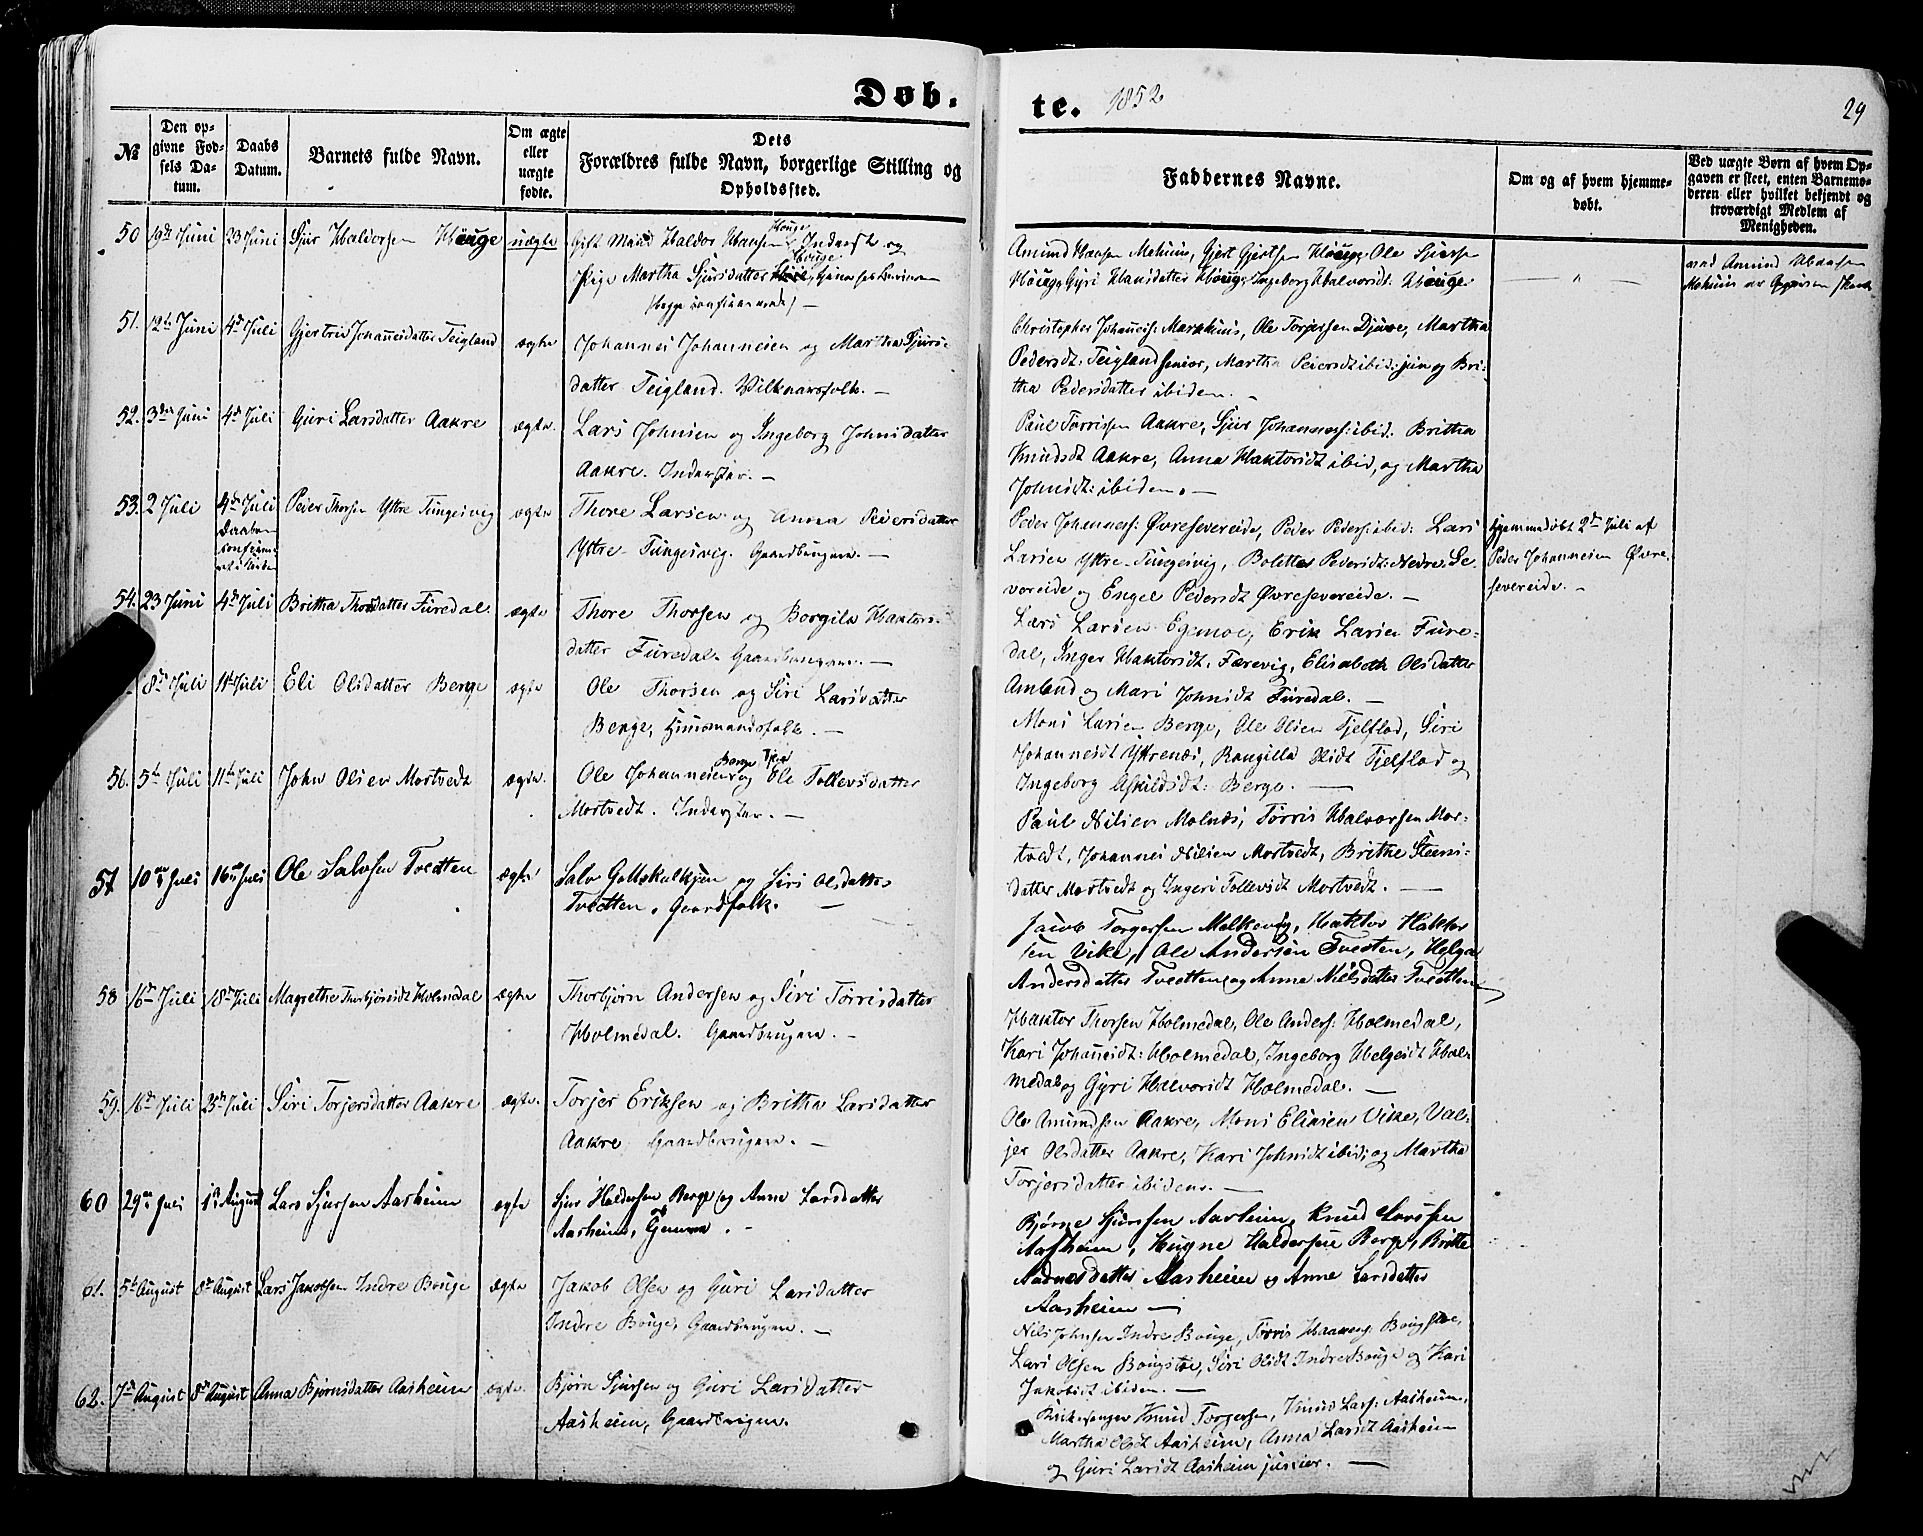 Døb.
te. 1852
29
№
Den opgivne Fødsels Datum.
Daabs Datum.
Barnets fulde Navn.
Om ægte eller uægte fødte.
Dets Forældres fulde Navn, borgerlige Stilling og Opholdssted.
Faddernes Navne.
Om og af hvem hjemmedøbt.
Ved uægte Børn af hvem Opgaven er skeet, enten Barnemoderen eller hvilket bekjendt og troværdigt Medlem af Menigheden.
50 19de Juni 23 Juni Sjur Haldorsen Houge uægte
Gift Mand Haldor Hansen Houge Inderst og
Pige Martha Sjursdatter Houge
(begge confirmerede) —
Amund Hansen Mehuus, Gjert Gjertsen Houge, Ole Sjurse
Houge, Gyri Hansdatter Houge, Ingeborg Halvorsdt. Houge
— " —
ved Amund Hansen
Mehuus
51. 12te Juni 4de Juli Gjertrü Johannesdatter Teigland ægte
Johannes Johannesen og Martha Sjurs-
datter Teigland. Vilkaarsfolk. —
Christopher Johannes: Markhuus, Ole Torjersen Djuve, Martha
Pedersdt: Teigland senior, Martha Pedersdt ibid: jun og Bri-
tha Pedersdatter ibidem. —
52. 3die Juni 4de Juli Guri Larsdatter Aakre ægte
Lars Johnsen og Ingeborg Johnsdatter
Aakre. Inderster. —
Paul Tørrissen Aakre, Sjur Johanness: ibid: Britha
Knudsdt Aakre, Anna Haktorsdt ibid, og Martha
Johnsdt: ibidem. —
53. 2 Juli 4de Juli Peder Thorsen Ytre Tungesvig ægte
Daaben
Thore Larsen og Anna Pedersdatter
Ytre-Tungesvig. Gaardbrugere. —
Peder Johanness: Øvresevereide, Peder Peders: ibid: Lars
Larsen Ytre-Tungesvig, Bolette Pedersdt: Nedre-Se-
vereide og Engel Pedersdt Øvresevereide. —
hjemmedøbt 2den Juli af
Peder Johannesen Øvre-
severeide. —
54. 23 Juni 4de Juli Britha Thorsdatter Furedal ægte
Thore Thorsen og Borgila Haktors-
datter Furedal. Gaardbrugere. —
Lars Larsen Egemoe, Erik Larsen Fure-
dal, Inger Haktorsdt. Færevig, Elisabeth Olsdatter
Amland og Mari Johnsdt Furedal. —
8de Juli 11te Juli Eli Olsdatter Berge ægte
Ole Thorsen og Siri Larsdatter
Berge, Huusmandsfolk. —
Mons Larsen Berge, Ole Olsen Fjelflod, Siri
Johannesdt Ytrenes, Rangilla Olsdt Fjelflod og
Ingeborg Askildsdt: Berge. —
56. 5te Juli 11te Juli John Olsen Mortvedt ægte.
Ole Johannesen Berge og Eli Tollevsdatter
Mortvedt. Inderster. —
Paul Nilsen Molnes, Tørris Halvorsen Mor-
tvedt, Johannes Nilsen Mortvedt, Brithe Steens-
datter Mortvedt og Ingeri Tollevsdt Mortvedt. —
57 10de Juli 16de Juli Ole Salvesen Tvedten ægte
Salve Gottskalksen og Siri Olsdatter
Tvedten, Gaardfolk. —
Jacob Torgersen Melkevig, Haktor Haktor
sen Vike, Ole Andersen Tvedten, Helga
Andersdatter Tvedten og Anna Nielsdatter Tvedten
58 16de Juli 18de Juli Magrethe Thorbjørnsdt Holmedal ægte
Thorbjørn Andersen og Siri Tørrisdatter
Holmedal. Gaardbrugere. —
Haktor Thorsen Holmedal, Ole Anders: Holmedal,
Kari Johannesdt: Holmedal, Ingeborg Helgesdt Hol-
medal og Gyri Halvorsdt Holmedal. —
59. 16de Juli 25de Juli Siri Torjersdatter Aakre ægte.
Torjer Eriksen og Britha Larsdatter
Aakre, Gaardbrugere. —
Ole Amundsen Aakre, Mons Eliasen Vike, Val-
jer Olsdatter Aakre, Kari Johnsdt ibid; og Martha
Torjersdatter ibidem. —
60 29de Juli 1ste August Lars Sjursen Aasheim ægte
Sjur Haldorsen Berge og Anne Larsdatter
Aasheim, —
Bjørne Sjursen Aasheim, Knud Larssen
Aasheim, Haldorsen Berge, Britte
Aadnesdatter Aasheim og Anne Larsdatter
Aasheim —
61. 5te August 8de August Lars Jakobsen Indre Bouge ægte
Jakob Olsen og Guri Larsdatter
Indre Bouge, Gaardbrugere. —
Nils Johnsen Indre Bouge, Tørris Haakens: Bougstøe,
Lars Olsen Bougstøe, Siri Olsdt Indre Bouge og Kari
Jakobsdt ibidem. —
62. 7de August 8de August Anna Bjørnsdatter Aasheim ægte.
Bjørn Sjursen og Guri Larsdatter
Aasheim, Gaardbrugere.
Kirkesanger Knud Torgersen, Knud Lars: Aasheim,
Martha Olsdt Aasheim, Anna Larsdt Aasheim
og Guri Larsdt Aasheim junior. —